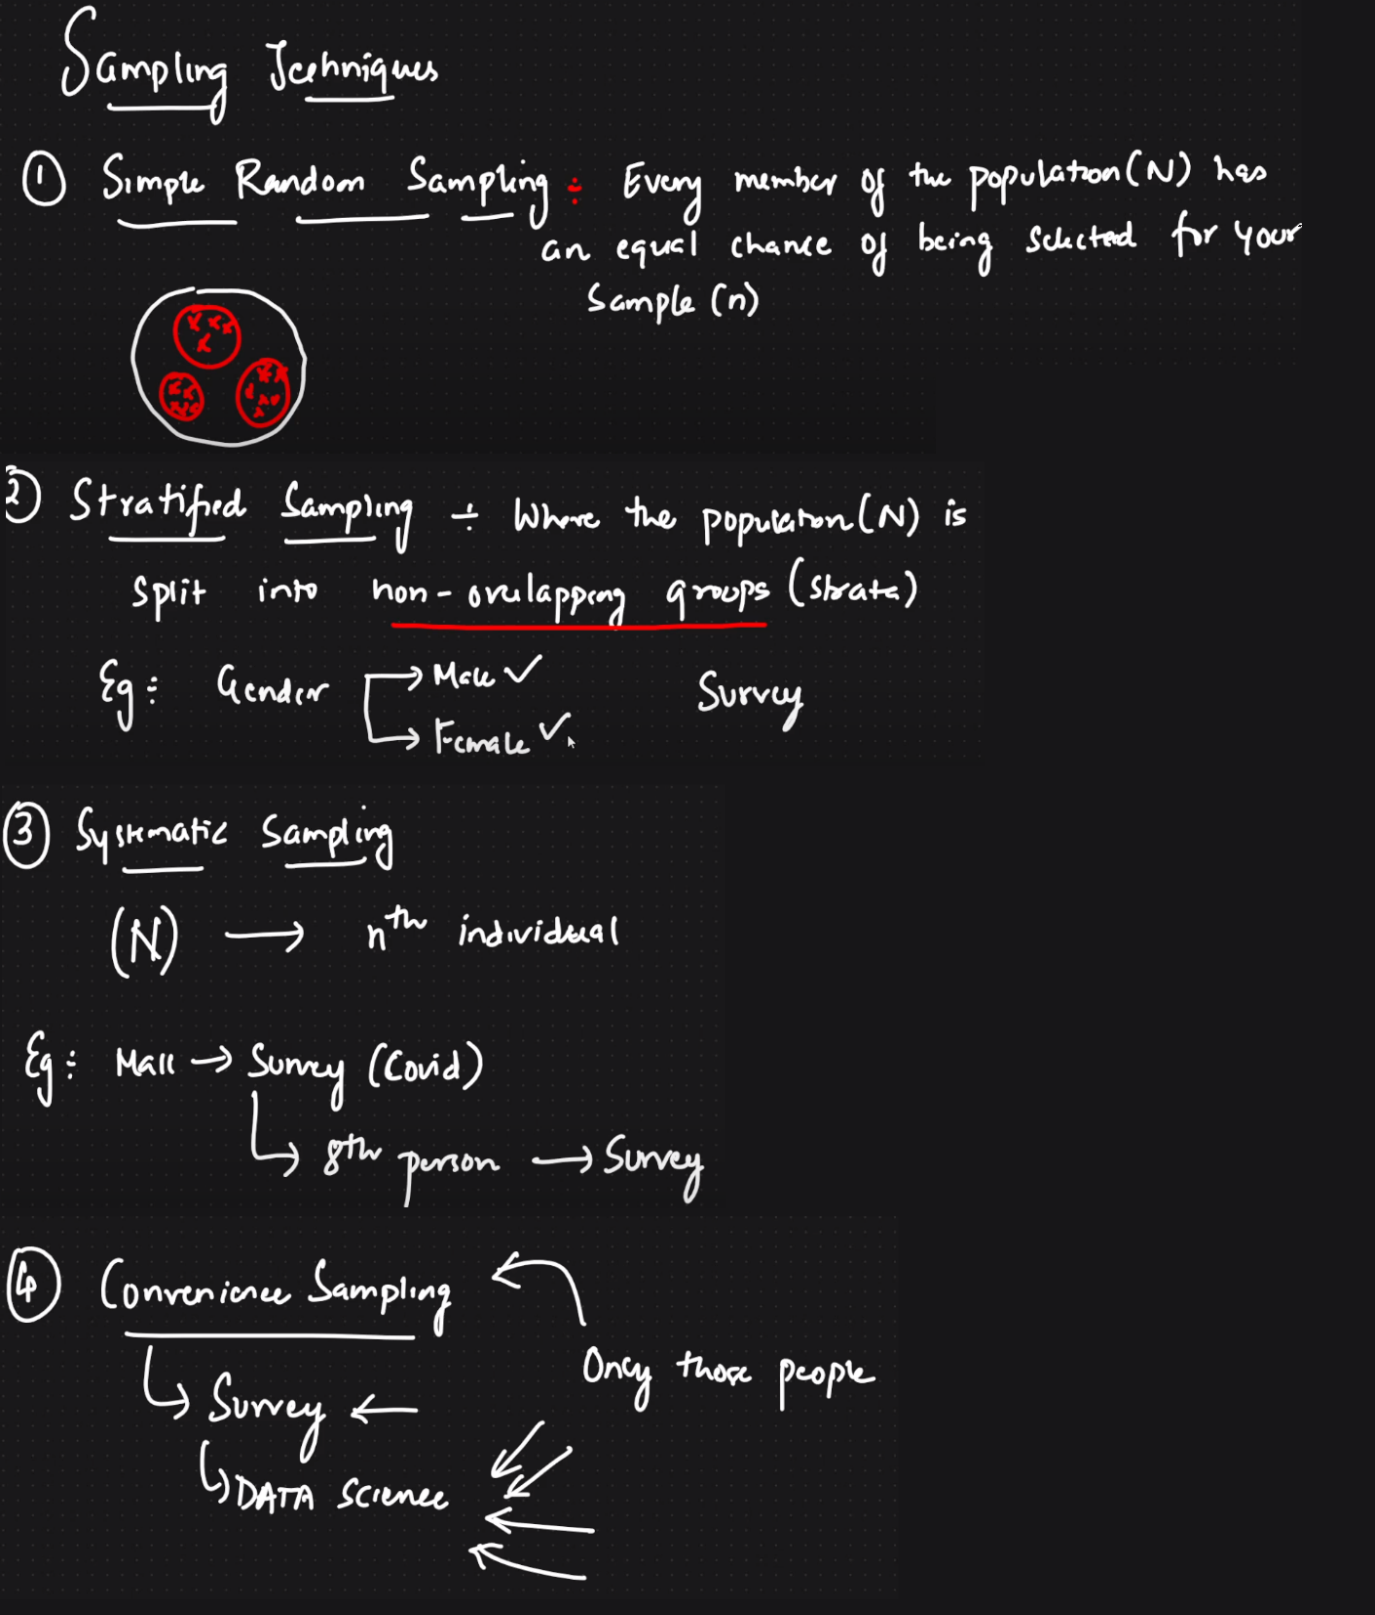 Sampling Techniques
① Simple Random Sampling : Every member of the population (N) has
an equal chance of being selected for your
Sample (n)
② Stratified Sampling ÷ Where the population (N) is
split into non-overlapping groups (strata)
Eg : Gender → Male ✓ Survey
→ Female ✓
③ Systematic Sampling
(N) → nth individual
Eg : Mall → Survey (Covid)
→ 8th person → Survey
④ Convenience Sampling ←
Only those people
→ Survey ←
→ DATA Science